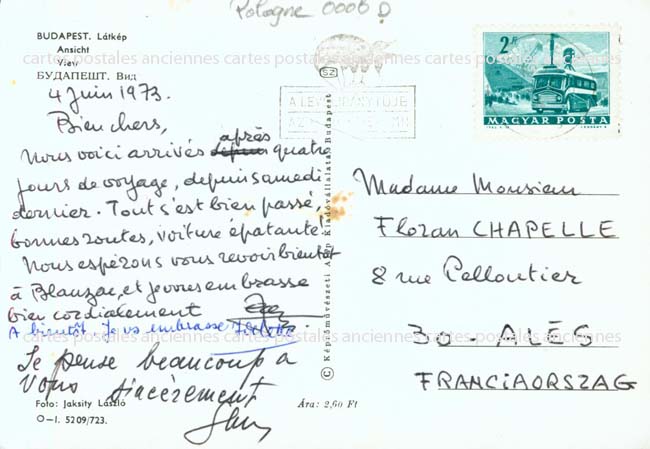 Pologne 0006 D
BUDAPEST. Látkép
Ansicht
View
БУДАПЕШТ. Вид
4 Juin 1973.
Bien chers,
Nous voici arrivés depuis après quatre
jours de voyage, depuis samedi
dernier. Tout s'est bien passé,
bonnes routes, voiture épatante!
Nous espérons vous revoir bientôt
à Blauzac, et je vous embrasse
bien cordialement
A bientôt. Je vs embrasse
Je pense beaucoup a
Vous sincèrement
Foto: Jaksity László
O-I. 5209/723.
Ára: 2,60 Ft
© Képzőművészeti Alap Kiadóvállalata, Budapest
SZ
A LEVÉL IRÁNYÍTÓJE
2 Ft
MAGYAR POSTA
Madame Monsieur
Floran CHAPELLE
8 rue Pelloutier
30 - ALÈS
FRANCIAORSZAG
cartes postales anciennes cartes postales anciennes cartes postales anciennes
cartes postales anciennes cartes postales anciennes cartes postales anciennes